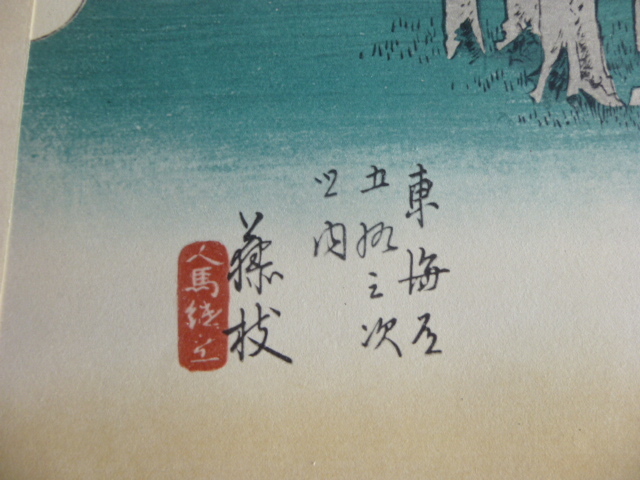 東海道
五拾三次
之内
藤枝
人馬継立